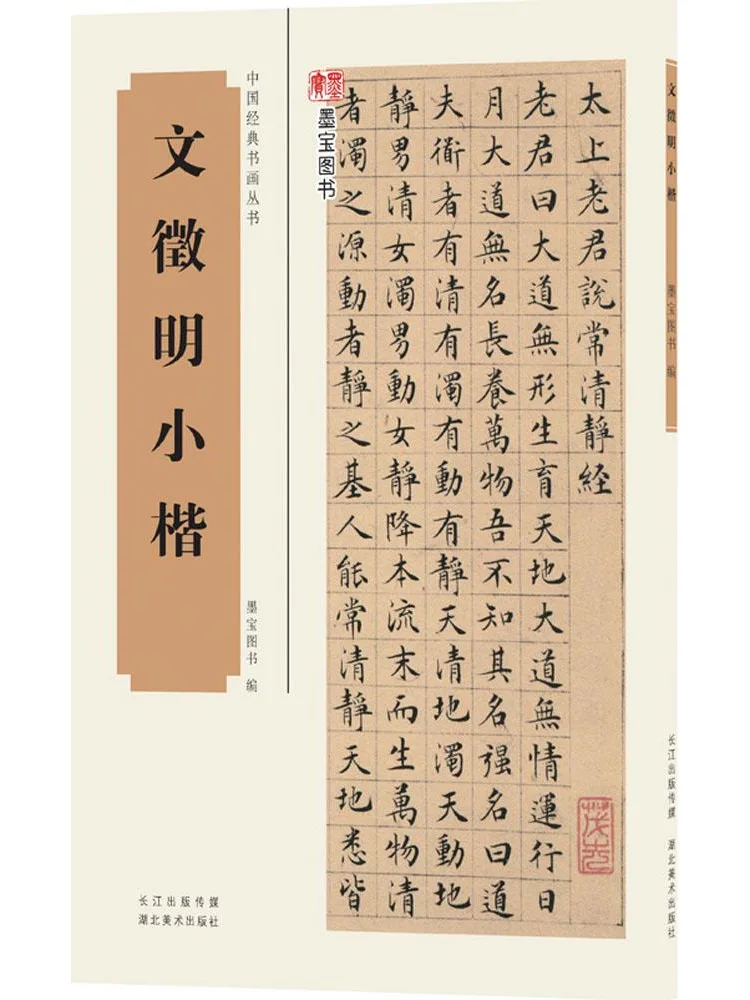 中国经典书画丛书
文徵明小楷
墨宝图书 编
长江出版传媒
湖北美术出版社
墨寶
墨宝图书
太上老君說常清靜経
老君曰大道無形生育天地大道無情運行日
月大道無名長養萬物吾不知其名强名曰道
夫衜者有清有濁有動有靜天清地濁天動地
靜男清女濁男動女靜降本流末而生萬物清
者濁之源動者靜之基人能常清靜天地悉皆
文徵明小楷
墨宝图书 编
长江出版传媒 湖北美术出版社